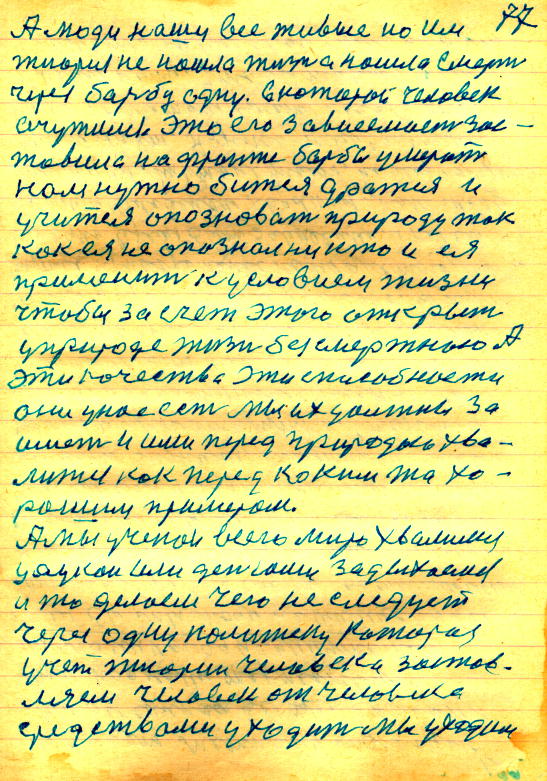 77
А люди нашы все живые но им
теория не нашла жизнь а нашла смерть
через барбу одну. в которой человек
очутился Это его зависемаст зас-
тавила на фронте барбы умерать
нам нужно бится дратся и
учится опозноват природу так
как ея не опознал никто и ея
применит к условием жизни
чтобы за счет этого открыт
у природе жизн безсмертною А
эти качества эти способности
они у нас ест мы их должны за
имет и ими перед природаю хва-
литя как перед каким та хо-
рошим примером.
А мы учение всего мира хвалимся
наукой или денгами задыхаемся
и то делаем чего не следует
через одну политеку которая
учет теории человека застов-
ляем человек от человека
средствами уходит мы уходим